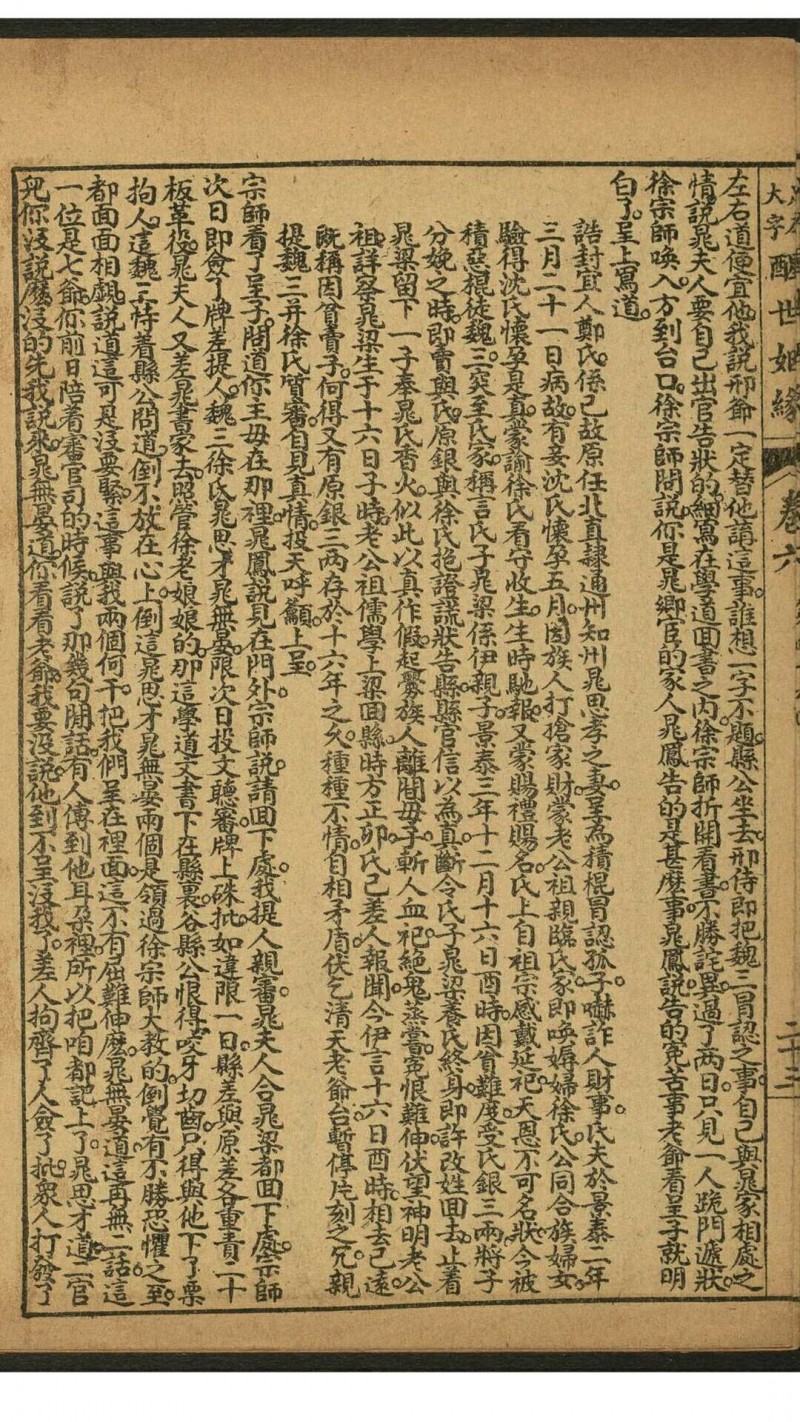 大字醒世姻緣 卷六 二十三
左右道便宜他我說邢爺一定替他講這事誰想一字不題縣公坐去邢侍郎把魏三冒認之事自己與晁家相處之
情說晁夫人要自己出官告狀的細寫在學道回書之內徐宗師折開看書不勝詫異過了兩日只見一人跪門遞狀
徐宗師喚入方到台口徐宗師問說你是晁鄉官的家人晁鳳告的是甚麼事晁鳳說告的冤苦事老爺看呈子就明
白了呈上寫道
誥封宜人鄭氏係已故原任北直隸通州知州晁思孝之妻呈為積棍冒認孤子嚇詐人財事氏夫於景泰二年
三月二十一日病故有妾沈氏懷孕五月因族人打搶家財蒙老公祖親臨氏家即喚媷婦徐氏公同合族婦女
驗得沈氏懷孕是真蒙諭徐氏看守收生生時馳報又蒙賜禮賜名氏上自祖宗感戴延祀天恩不可名狀今被
積惡棍徒魏三突至氏家稱言氏子晁梁係伊親子景泰三年十二月十六日酉時因貧難度受氏銀三兩將子
分娩之時即賣與氏原銀與徐氏抱證謊狀告縣縣官信以為真斷令氏子晁梁養氏終身即許改姓回去止着
晁梁留下一子奉晁氏香火似此以真作假起釁族人離間母子斬人血祀絕鬼蒸嘗冤恨難伸伏望神明老公
祖詳察晁梁生于十六日子時老公祖儒學上梁回縣時方正卯氏已差人報聞今伊言十六日酉時相去已遠
既稱因貧賣子何得又有原銀三兩存於十六年之久種種不情自相矛盾伏乞清天老爺台暫停片刻之冗親
提魏三并徐氏質審自見真情投天呼籲上呈
宗師看了呈子問道你主母在那裡晁鳳說見在門外宗師說請回下處我提人親審晁夫人合晁梁都回下處宗師
次日即僉了牌差提人魏三徐氏晁思才晁無晏限次日投文聽審牌上硃批如違限一日縣差與原差各重責二十
板革役晁夫人又差晁書家去照管徐老娘娘的那這學道文書下在縣裏谷縣公恨得咬牙切齒只得與他下了票
拘人這魏三恃着縣公問道倒不放在心上倒這晁思才晁無晏兩個是領過徐宗師大教的倒覺有不勝恐懼之至
都面面相覷說道這可是沒要緊這事與我兩個何干把我們呈在裡面這不有屈難伸麼晁無晏道這再無二話這
一位是七爺你前日陪着審官司的時候說了那幾句閒話有人傳到他耳朵裡所以把咱都記上了晁思才道二官
兒你沒說麼沒的先我說來晁無晏道你看看老爺我要沒說他到不呈沒我了差人拘齊了人僉了批眾人打發了